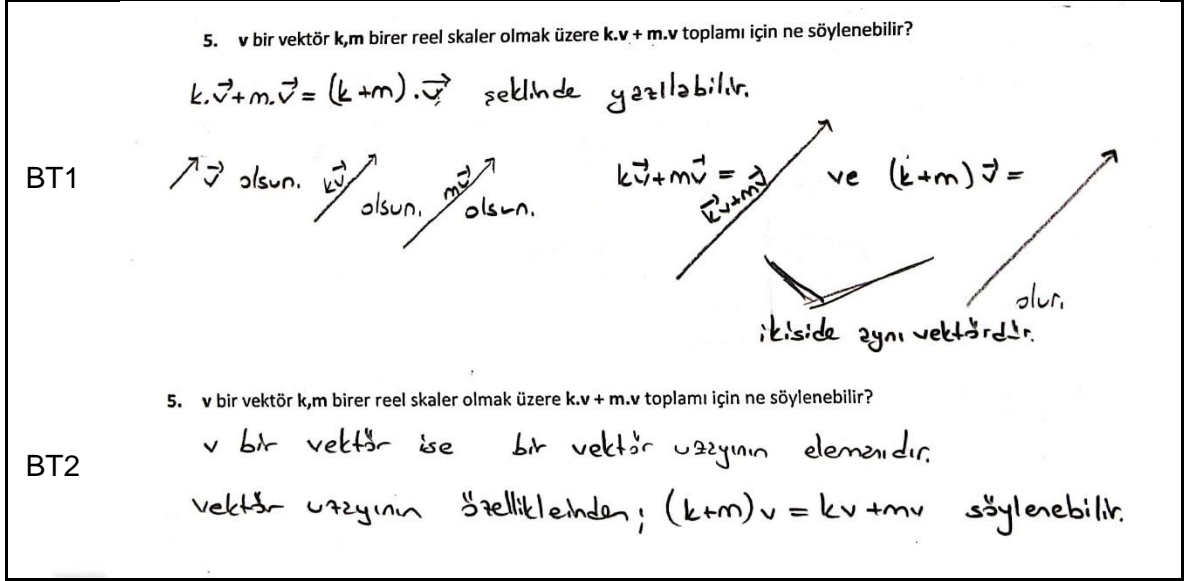 5. v bir vektör k,m birer reel skaler olmak üzere k.v + m.v toplamı için ne söylenebilir?
k.v⃗+m.v⃗ = (k+m).v⃗ şeklinde yazılabilir.
BT1
v⃗ olsun. kv⃗ olsun. mv⃗ olsun. kv⃗+mv⃗ = kv⃗+mv⃗ ve (k+m)v⃗ =
olur.
ikiside aynı vektördür.
5. v bir vektör k,m birer reel skaler olmak üzere k.v + m.v toplamı için ne söylenebilir?
BT2
v bir vektör ise bir vektör uzayının elemanıdır.
vektör uzayının özelliklerinden; (k+m)v = kv +mv söylenebilir.